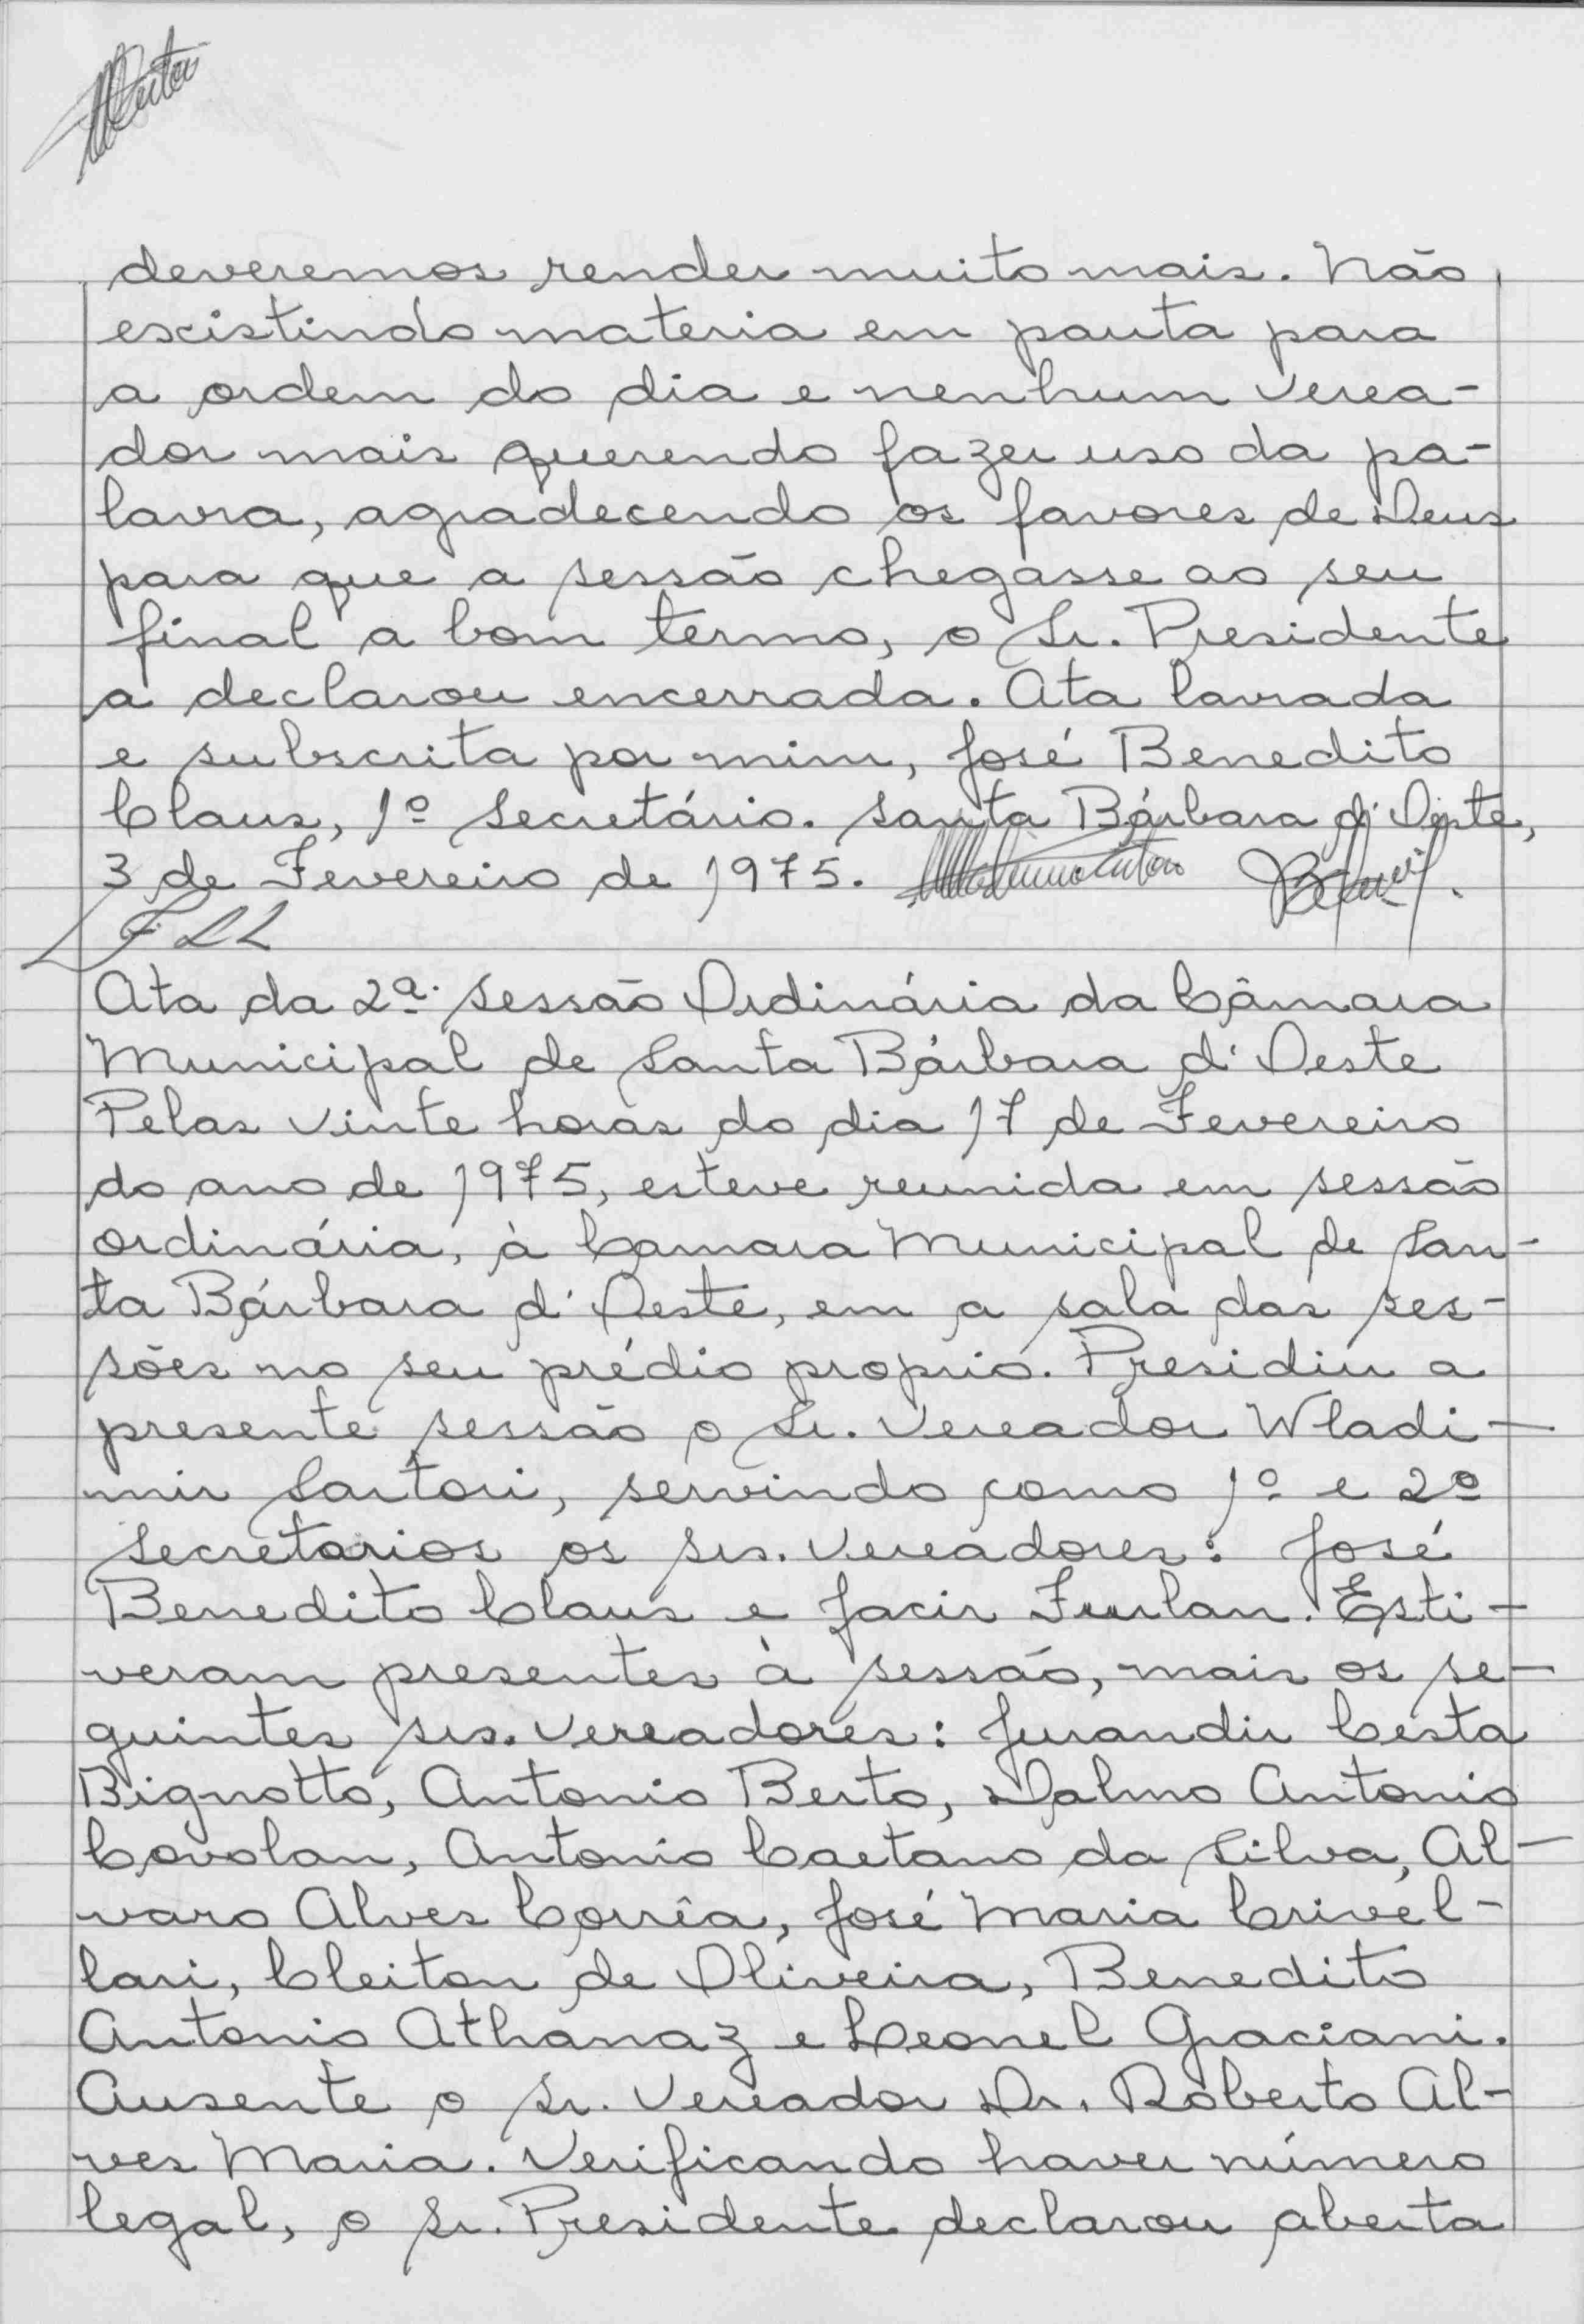 deveremos render muito mais. Não
existindo materia em pauta para
a ordem do dia e nenhum verea-
dor mais querendo fazer uso da pa-
lavra, agradecendo os favores de Deus
para que a sessão chegasse ao seu
final a bom termo, o Sr. Presidente
a declarou encerrada. Ata lavrada
e subscrita por mim, José Benedito
Claus, 1º Secretário. Santa Bárbara d'Oeste,
3 de Fevereiro de 1975.
Ata da 2ª. Sessão Ordinária da Câmara
Municipal de Santa Bárbara d'Oeste
Pelas vinte horas do dia 17 de Fevereiro
do ano de 1975, esteve reunida em sessão
ordinária, à Camara Municipal de San-
ta Bárbara d'Oeste, em a sala das ses-
sões no seu prédio proprio. Presidiu a
presente sessão o Sr. Vereador Wladi-
mir Sartori, servindo como 1º e 2º
Secretarios os srs. Vereadores: José
Benedito Claus e Jacir Furlan. Esti-
veram presentes à sessão, mais os se-
guintes srs. Vereadores: Jurandir Cesta
Bignotto, Antonio Berto, Dalmo Antonio
Covolan, Antonio Caetano da Silva, Al-
varo Alves Corrêa, José Maria Crivél-
lari, Cleiton de Oliveira, Benedito
Antonio Athanaz e Leonel Graciani.
Ausente o Sr. Vereador Dr. Roberto Al-
ves Maria. Verificando haver número
legal, o Sr. Presidente declarou aberta